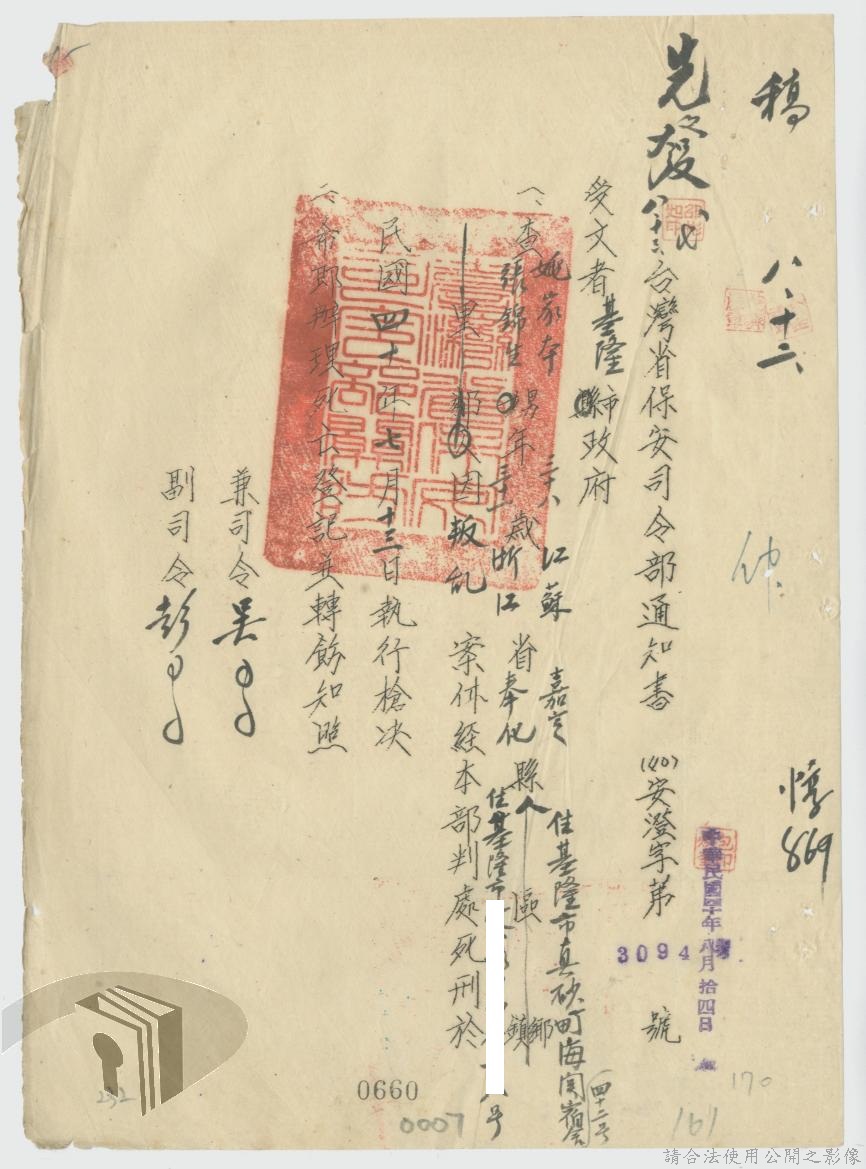 稿
八、十二
惇
869
先發
八、十三、
台灣省保安司令部通知書 (40)安澄字第 3094 號
中華民國四十年八月拾四日
受文者 基隆市政府
一、查
姚家本 男 年 三十八 歲 江蘇 省 嘉定 縣人 住基隆市真砂町海關宿舍四十二号
張錦生 三十 浙江 奉化 住基隆市 号
區 鄉鎮
里 鄰 因叛乱 案件經本部判處死刑於
民國四十年七月十三日執行槍決
二、希即辦理死亡登記並轉飭知照
兼司令 吳
副司令 彭
0660
0007
161
170
232
請合法使用公開之影像